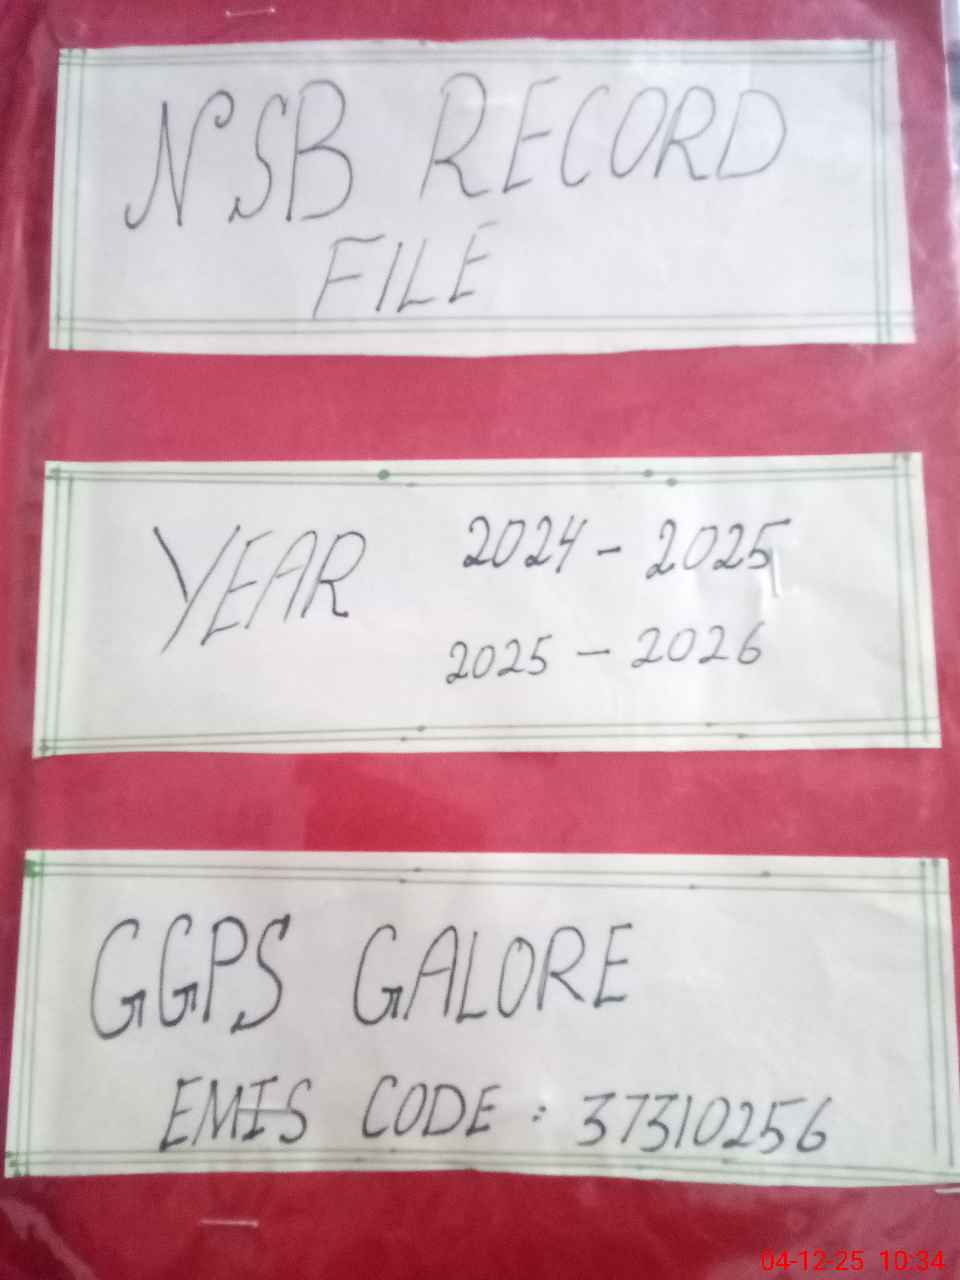 NSB RECORD
FILE
YEAR 2024 - 2025
2025 - 2026
GGPS GALORE
EMIS CODE : 37310256
04-12-25 10:34